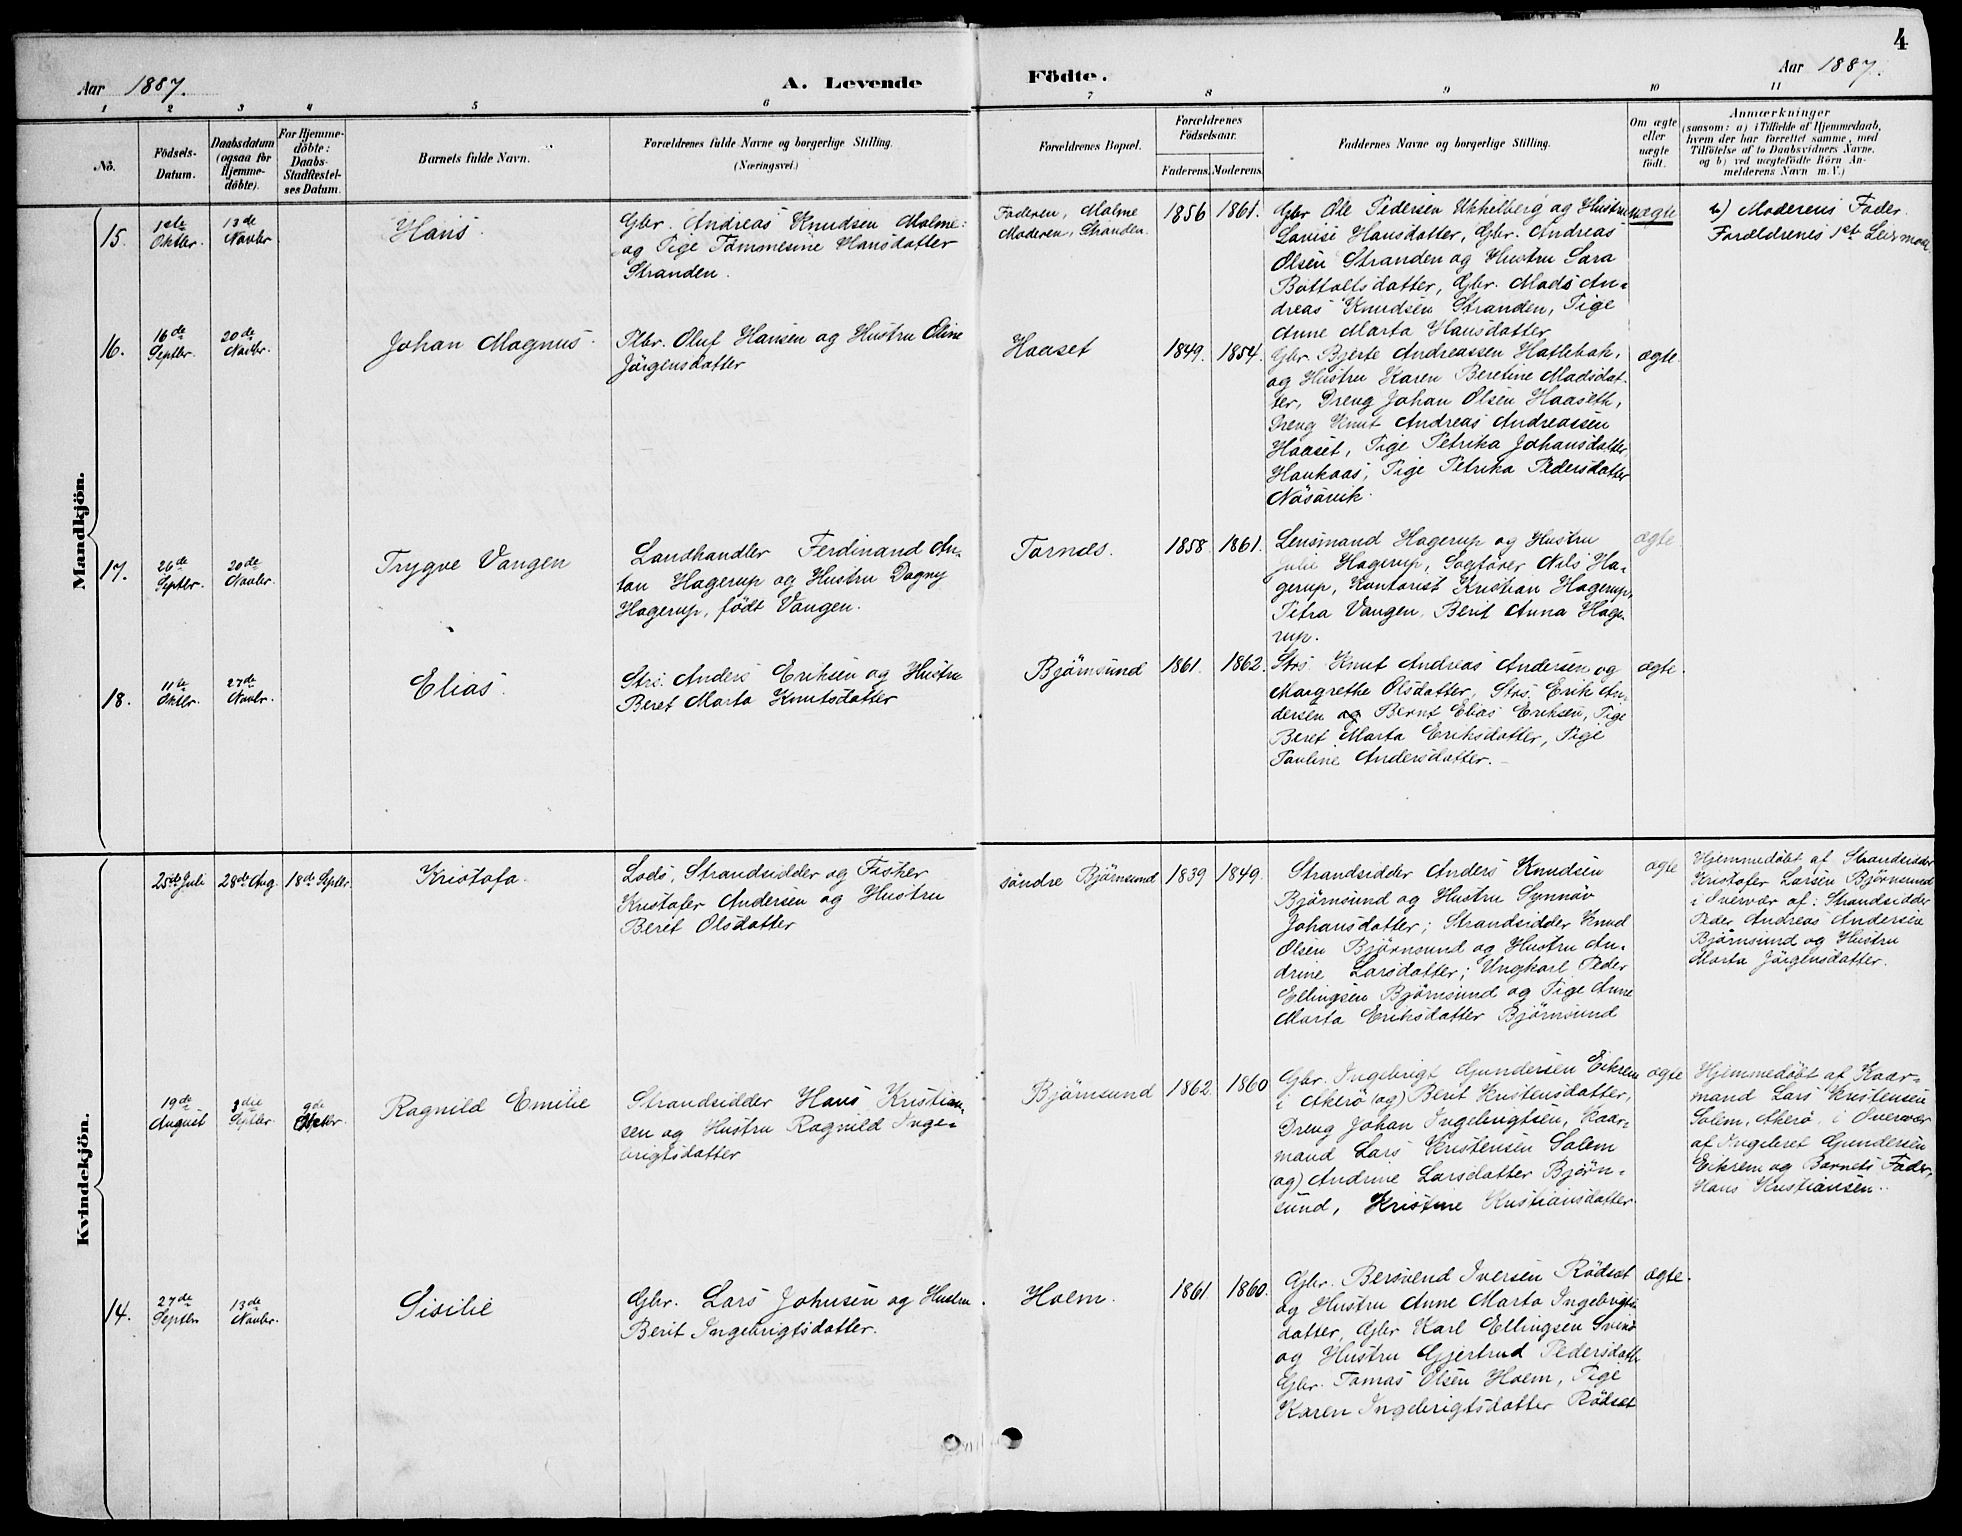 4
Aar 1887.
A. Levende Födte.
Aar 1887.
1 2 3 4 5 6 7 8 9 10 11
No.
Födsels-
Datum.
Daabsdatum
(ogsaa for
Hjemme-
döbte).
For Hjemme-
döbte:
Daabs-
Stadfæstel-
ses Datum.
Barnets fulde Navn.
Forældrenes fulde Navne og borgerlige Stilling.
(Næringsvei.)
Forældrenes Bopæl.
Forældrenes
Födselsaar.
Faderens. Moderens.
Faddernes Navne og borgerlige Stilling.
Om ægte
eller
uægte
födt.
Anmærkninger
(saasom: a) i Tilfælde af Hjemmedaab,
hvem der har forrettet samme, med
Tilföielse af to Daabsvidners Navne,
og b) ved uægtefödte Börn An-
melderens Navn m. V.)
Mandkjön.
15.
1ste
Oktbr.
13de
Novbr.
Hans.
Gbr. Andreas Knudsen Malme
og Pige Tammesine Hansdatter
Stranden.
Faderen, Malme
Moderen, Stranden.
1856 1861.
Gbr Ole Pedersen Ukkelberg og Hustru
Lovise Hansdatter, Gbr. Andreas
Olsen Stranden og Hustru Sara
Bottolfsdatter, Gbr. Mads An-
dreas Knudsen Stranden, Pige
Anne Marta Hansdatter
uægte
b) Moderens Fader.
Forældrenes 1ste Leiermaal
16.
16de
Septbr.
20de
Novbr.
Johan Magnus.
Fbr. Oluf Hansen og Hustru Oline
Jörgensdatter
Haaset
1849. 1854.
Gbr. Bjerte Andreassen Hatlebak,
og Hustru Karen Beretine Madsdat-
ter, Dreng Johan Olsen Haaseth,
Dreng Knut Andreas Andreassen
Haaset, Pige Petrika Johansdatter
Haukaas, Pige Petrika Pedersdatter
Näsävik.
ægte.
17.
26de
Septbr.
20de
Novbr.
Trygve Vangen
Landhandler Ferdinand An-
ton Hagerup og Hustru Dagny
Hagerup, födt Vangen.
Tornes.
1858 1861.
Lensmand Hagerup og Hustru
Julie Hagerup, Sagförer Nils Ha-
gerup, Kontorist Kristian Hagerup,
Petra Vangen, Berit Anna Hage-
rup.
ægte
18.
11te
Oktbr.
27de
Novbr.
Elias.
Strs. Anders Eriksen og Hustru
Beret Marta Knutsdatter
Björnsund
1861. 1862.
Strs. Knut Andreas Andersen og
Margrethe Olsdatter, Strs. Erik An-
dersen og Bernt Elias Eriksen, Pige
Beret Marta Eriksdatter, Pige
Pauline Andersdatter.
ægte.
Kvindekjön.
25de Juli
28de Aug.
18de Septbr
Kristofa.
Lods, Strandsidder og Fisker
Kristofer Andersen og Hustru
Berit Olsdatter
söndre Björnsund
1839 1849.
Strandsidder Anders Knudsen
Björnsund og Hustru Synnöv
Johansdatter; Strandsidder Knud
Olsen Björnsund og Hustru An-
drine Larsdatter; Ungkarl Peder
Ellingsen Björnsund og Pige Anne
Marta Eriksdatter Björnsund
ægte
Hjemmedöbt af Strandsidder
Kristofer Larsen Björnsund
i Overvær af: Strandsidder
Peder Andreas Andersen
Björnsund og Hustru
Marta Jörgensdatter.
19de
August
3die
Septbr
9de
Oktbr.
Ragnild Emilie
Strandsidder Hans Kristian-
sen og Hustru Ragnild Inge-
brigtsdatter
Björnsund
1862 1860
Gbr. Ingebrigt Gundersen Eikrem
i Akerö (og) Berit Kristensdatter,
Dreng Johan Ingebrigtsen, Kaar-
mand Lars Kristensen Solem
(og) Andrine Larsdatter Björn-
sund, Kristine Kristiansdatter
ægte
Hjemmedöbt af Kaar-
mand Lars Kristensen
Solem, Akerö, i Overvær
af Ingebret Gundersen
Eikrem og Barnets Fader,
Hans Kristiansen.
14.
27de
Septbr
13de
Novbr.
Sisilie
Gbr. Lars Johnsen og Hustru
Berit Ingebrigtsdatter.
Holm.
1861. 1860.
Gbr. Bersvend Iversen Rödset
og Hustru Anne Marta Ingebrigts-
datter, Gbr Karl Ellingsen
og Hustru Gjertrud Pedersdatter
Gbr. Tomas Olsen Holm, Pige
Karen Ingebrigtsdatter Rödset
ægte.